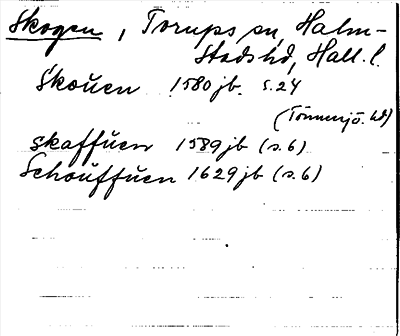 Skogen, Torups sn, Halm-
stads hd, Hall. l.
Skoŭen 1580 jb. s. 24
(Tönnersjö hd)
skaffŭen 1589 jb (s. 6)
Schoŭffŭen 1629 jb (s. 6)